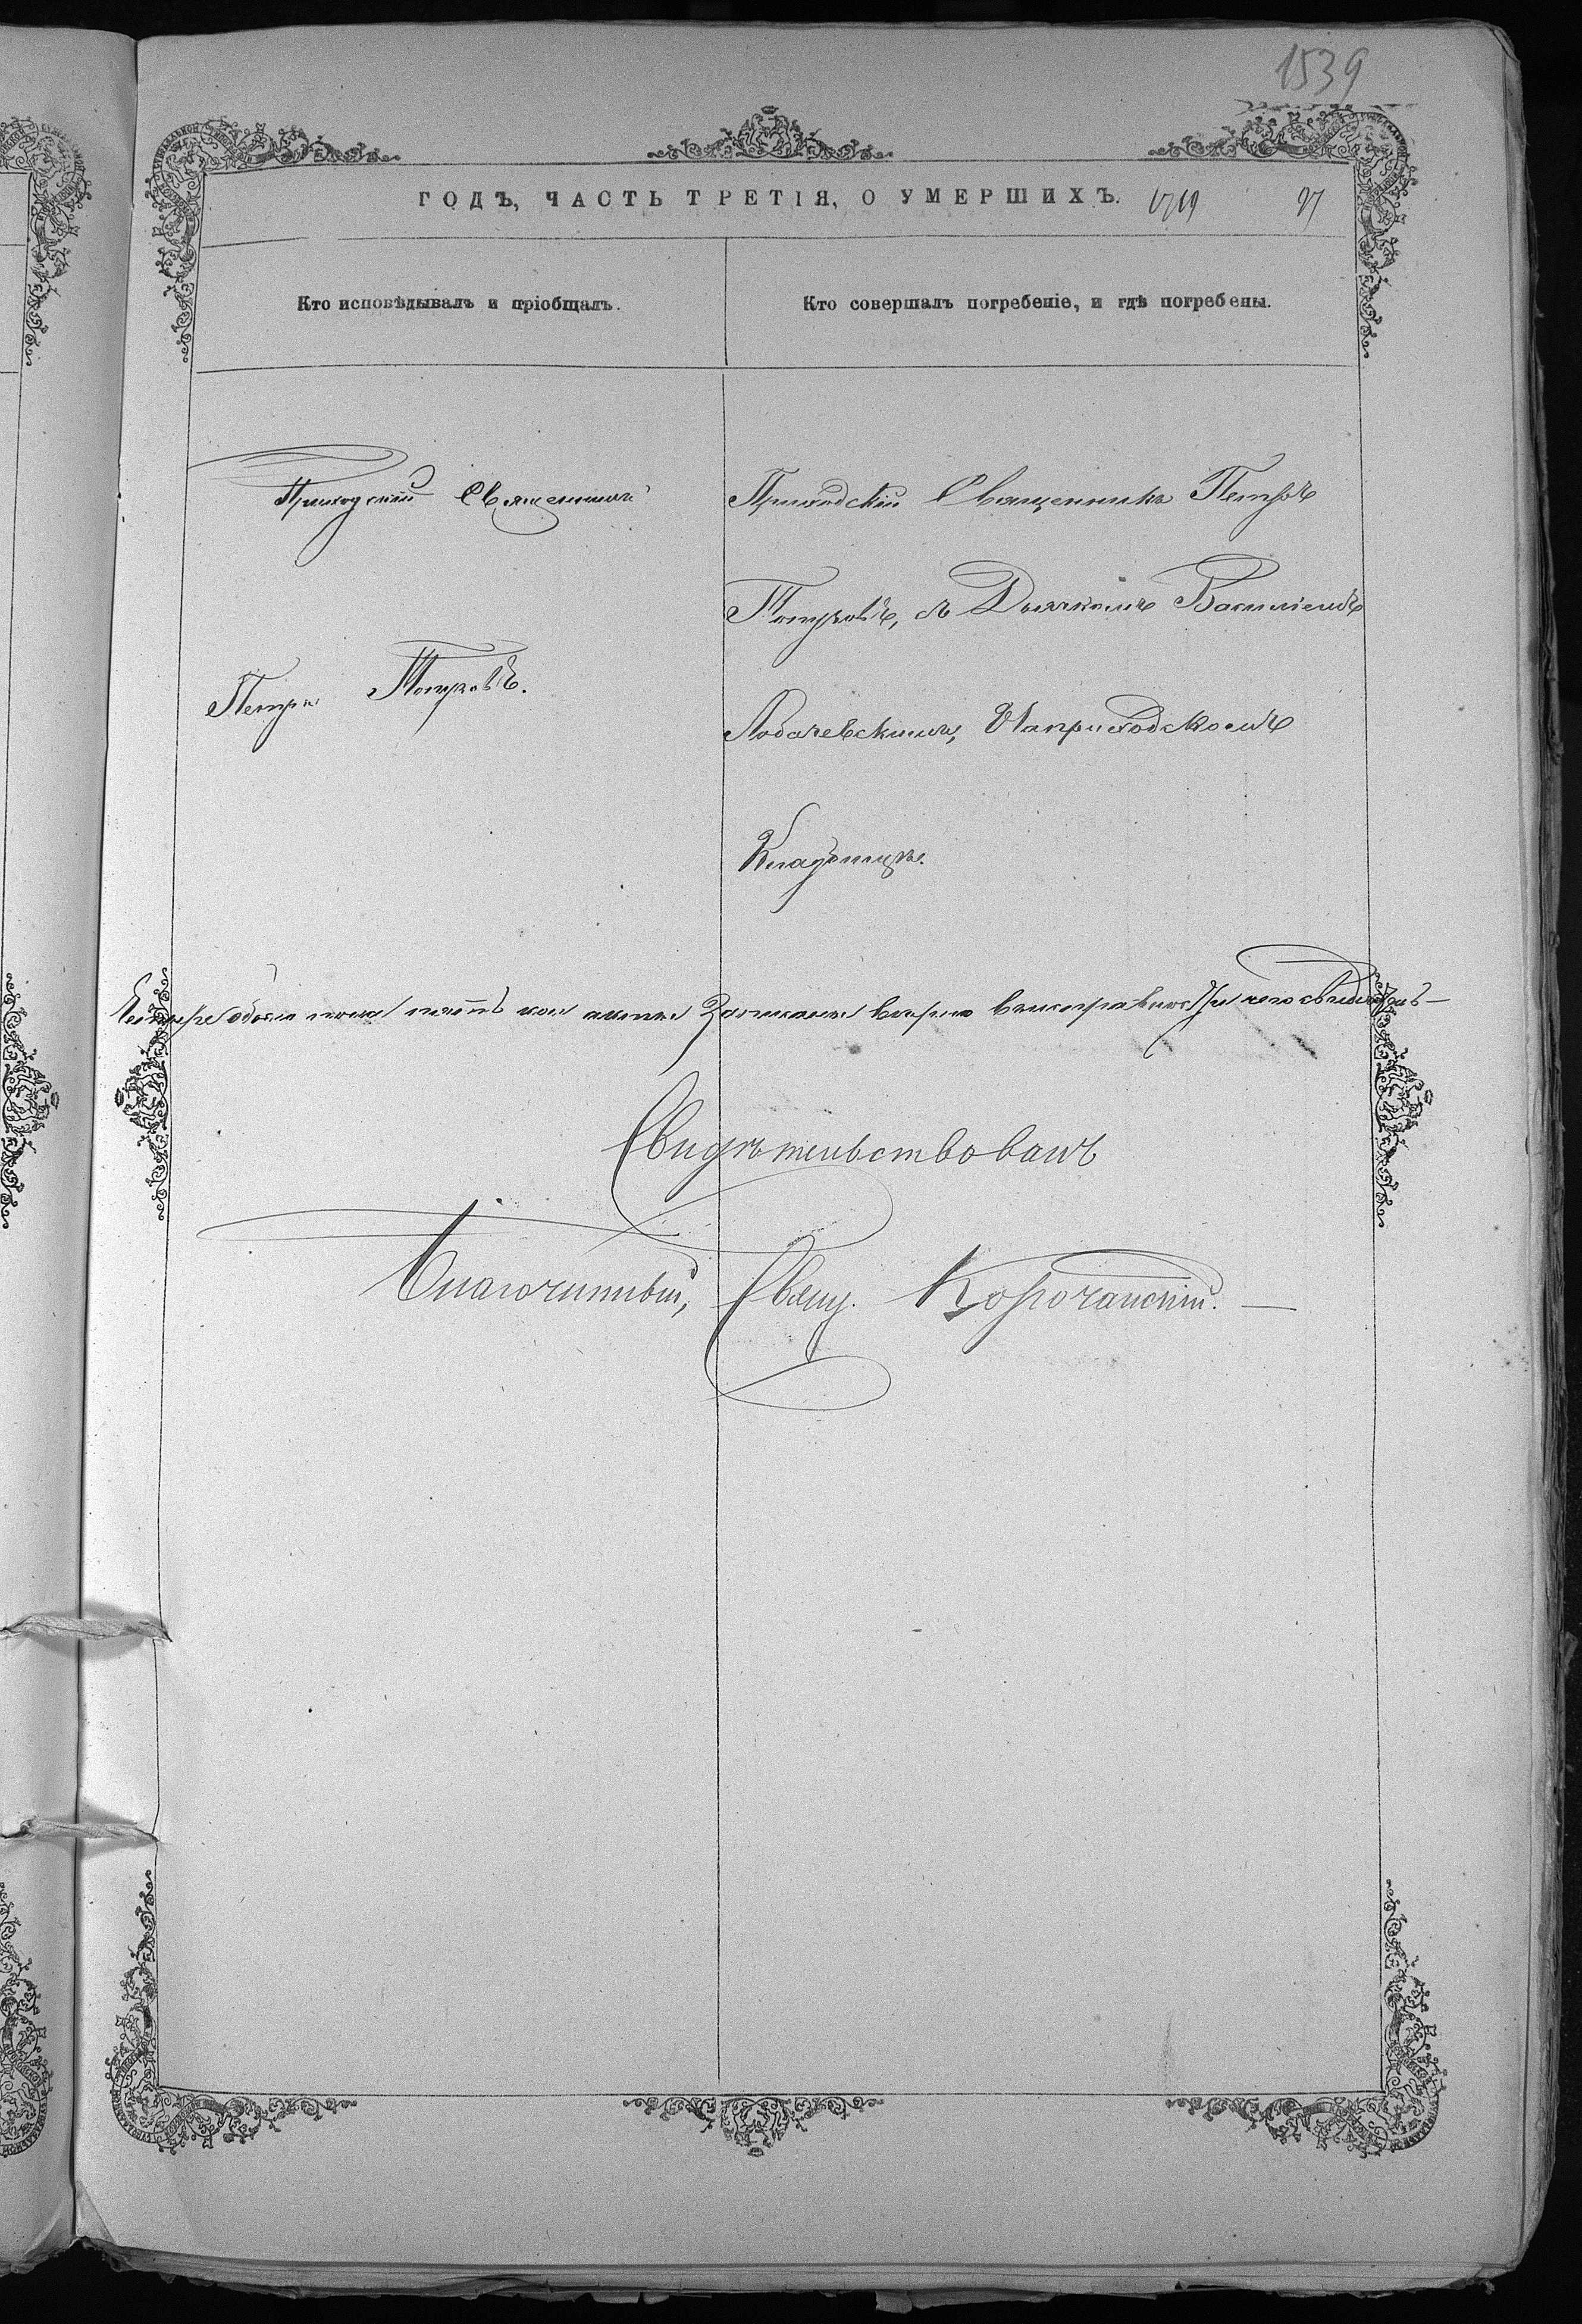 1539
ГОДЪ, ЧАСТЬ ТРЕТІЯ, О УМЕРШИХЪ. 1719 97
Кто исповѣдывалъ и пріобщалъ.
Кто совершалъ погребеніе, и гдѣ погребены.
Приходскій Священникъ
Петръ
Приходскій Священникъ Петръ
съ Дьячкомъ Василіемъ
Лобачевскимъ, На приходскомъ
Кладбищѣ.
обоего пола
Свидѣтельствовалъ
Благочинный, Свящ. Корочанскій.—